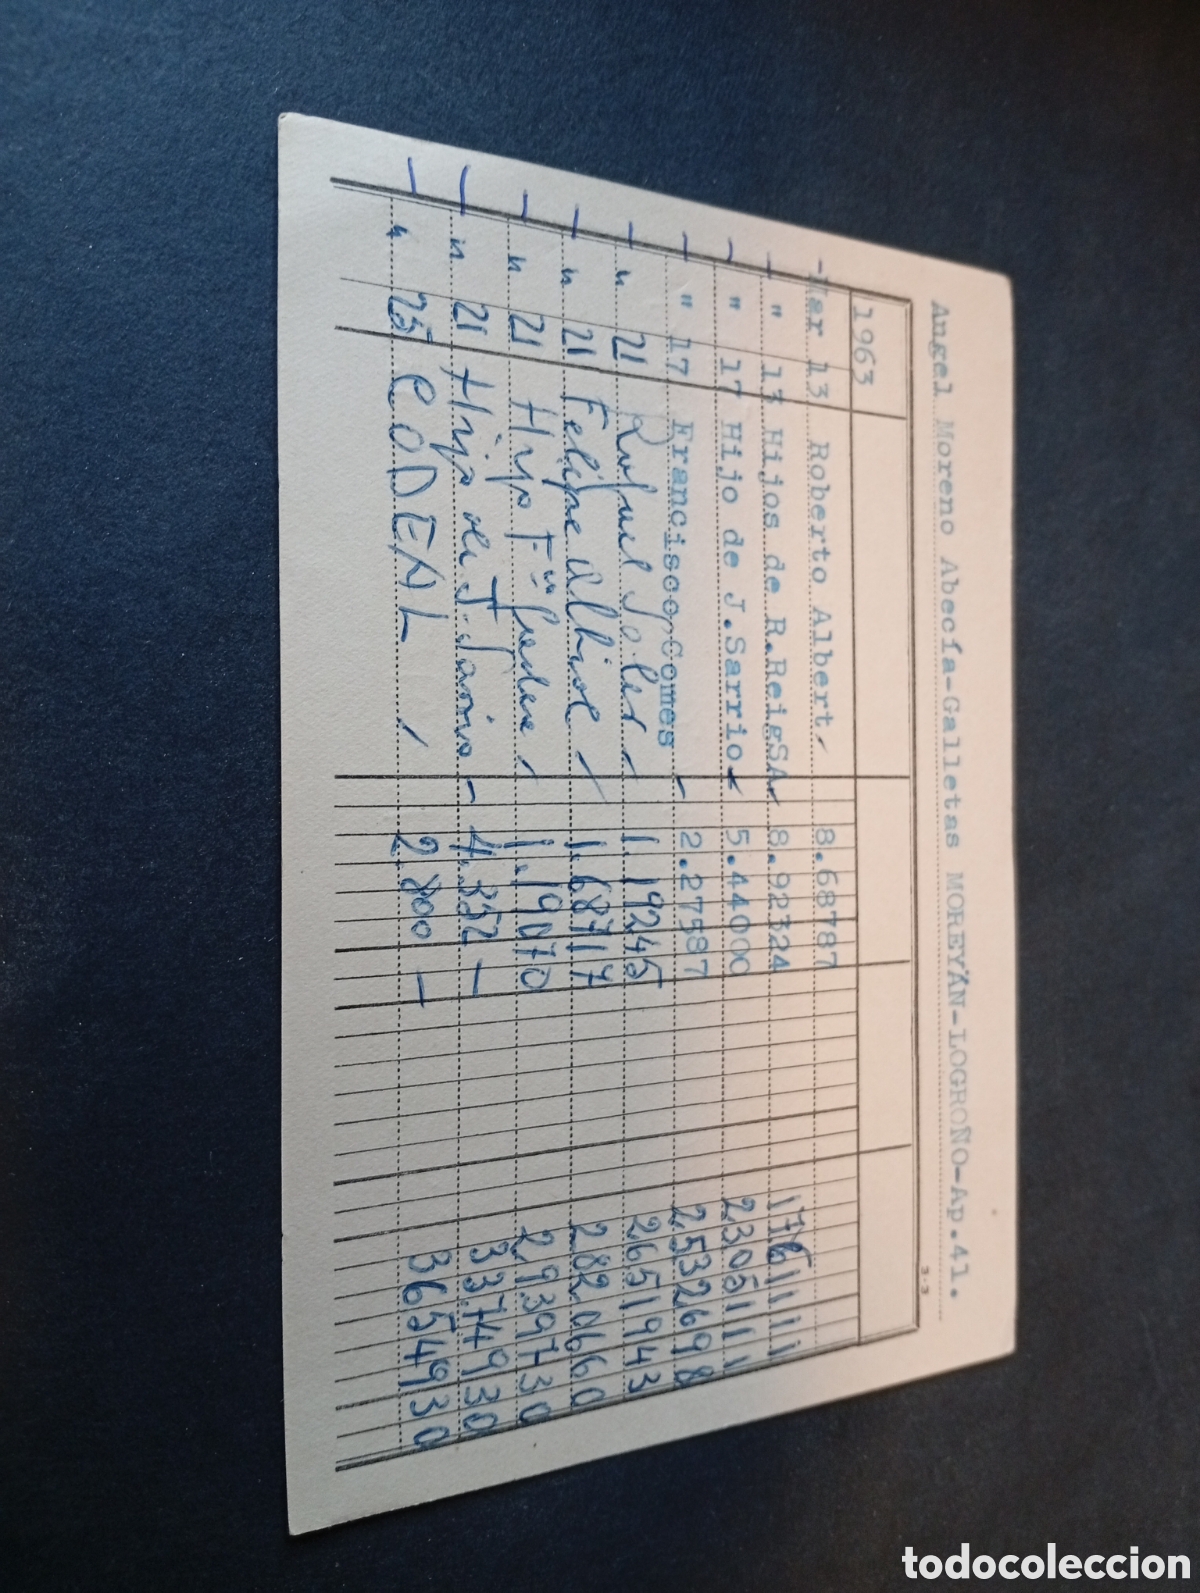 Angel Moreno Abecía-Galletas MOREYÁN-LOGROÑO-Ap.41.
3-3
1963
-Mar 13 Roberto Albert 8.68787
" 13 Hijos de R.ReigSA 8.92324 1761111
" 17 Hijo de J.Sarrio 5.44000 2305111
" 17 Francisco Gomes - 2.27587 2532698
" 21 Rafael Soler 1.19245 2651943
" 21 Felipe 1.68717 2820660
" 21 Hijo Fco 1.19070 2939730
" 21 Hijo de J. Sarrio - 4.352 - 3374930
" 25 CODEAL 2.800 - 3654930
todocoleccion